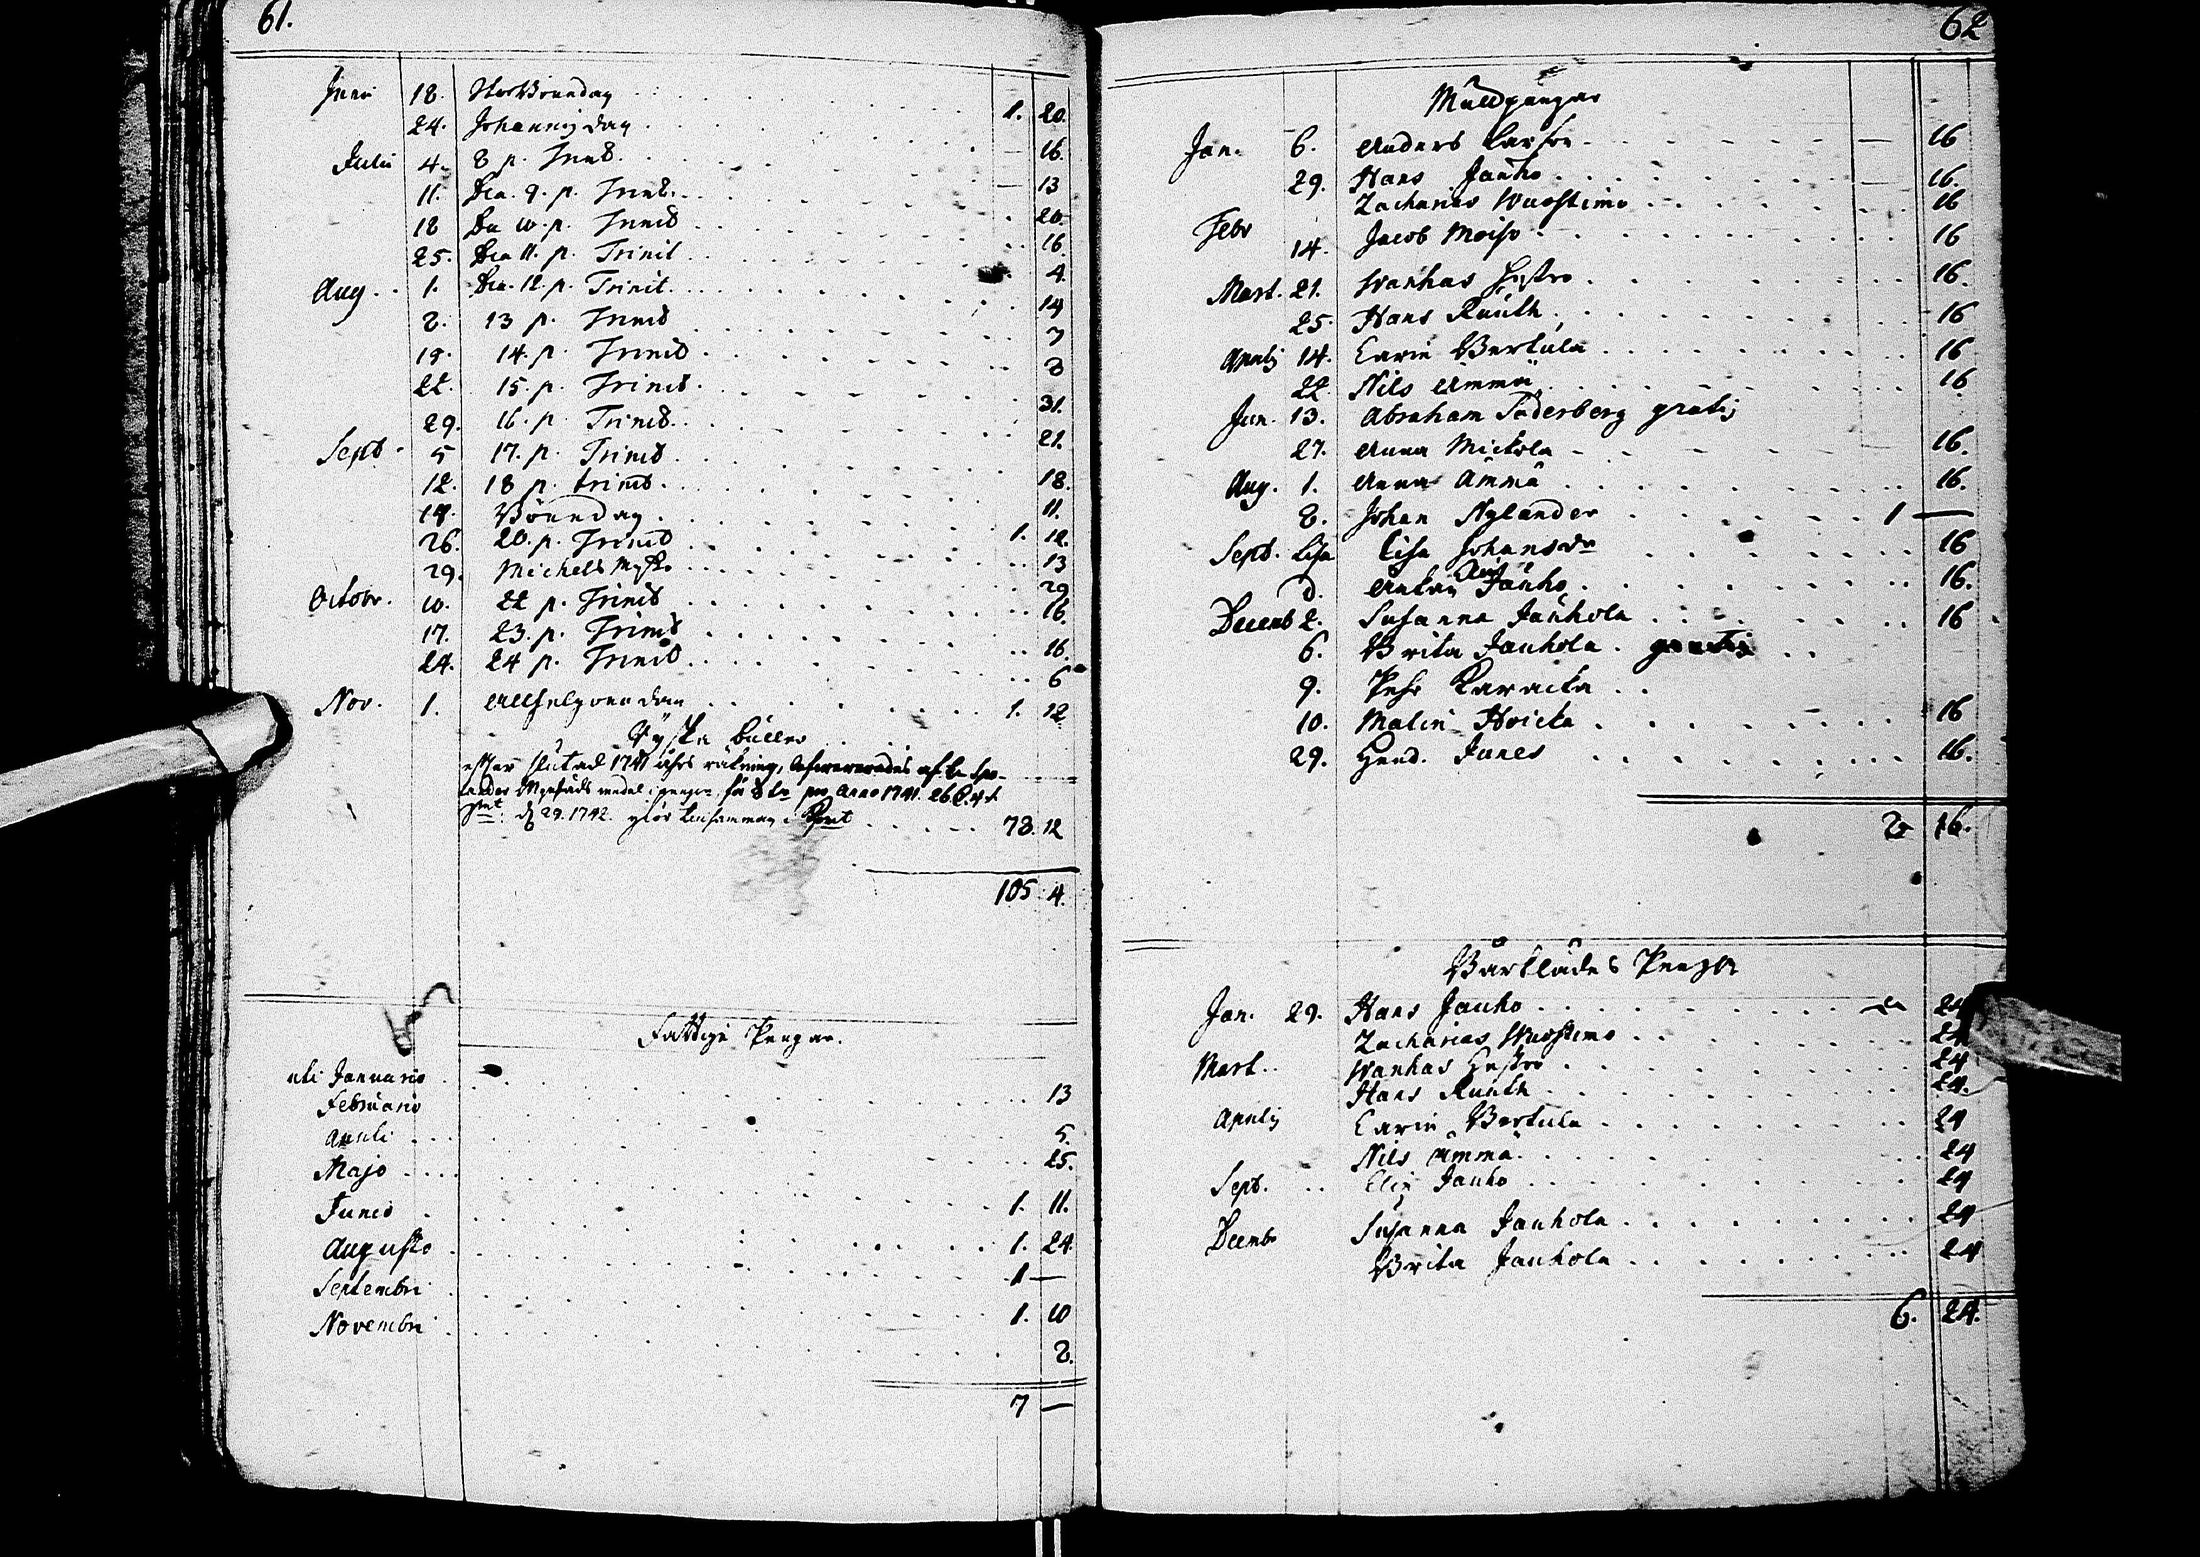 61.
Junii 18. Stor Bönedag 1. 20.
24. Johannis dag 16.
Julii 4. 8 p. Trinit. 13
11. Dca. 9. p. Trinit. 20
18 Dca 10. p. Trinit 16
25. Dca 11. p. Trinit 4.
Aug. 1. Dca. 12. p. Trinit. 14
8. 13 p. Trinit 7
14. p. Trinit 8
22. 15. p. Trinit. 31.
29. 16. p. Trinit. 21.
Sept. 5 17. p. Trinit
12. 18 p. trinit. 18.
19. Bönedag 11.
26. 20. p. Trinit 1. 12.
29. Michels 13
29
Octobr. 10. 22 p. Trinit 16.
17. 23. p. Trinit
24. 24 p. Trinit 16.
6
Nov. 1. Allhelgona dag 1. 12.
Ryska
1741 åhrs räkning,
medel för pro Anno 1741. 26
29. 1742. 78. 12
105. 4.
Fattige Pengar.
uti Januario
Februario 13
Aprili 5.
Majo 25.
Junio 1. 11.
Augusto 1. 24.
Septembri 1 —
Novembri 1. 10
8.
7 —
62
Mulldpängar
Jan. 6. Anders Larson — 16
29. Hans Jauho — 16.
Zacharias Wuostimo 16
Febr 14. Jacob Moiso 16
Mart. 21. Wanhas Hustro 16.
25. Hans Ruuth 16
Aprilis 14. Carin Bertula 16
22. Nils Ämmä 16
Jun. 13. Abraham Söderberg gratis
27. Anna Mickola 16.
Aug. 1. Anna Ämmä 16.
8. Johan Nylander 1 —
Sept. Lisa Johansdr 16
d. Jauho 16.
Decemb 2. Susanna Jauhola 16
6. Brita Jauhola. gratis
9. Pehr Karacka
10. Malin Hoicka 16
29. Hend. Junes 16.
8 16.
Bårklädes Pengar
Jan. 29. Hans Jauho 24
Zacharias Wuostimo 24
Mart. Wanhas Hustro 24
Hans Ruuth 24.
Aprilis Carin Bertula 24
Nils Ämmä 24
Sept. Jauho 24
Decembr Susanna Jauhola 24
Brita Jauhola 24
6. 24.